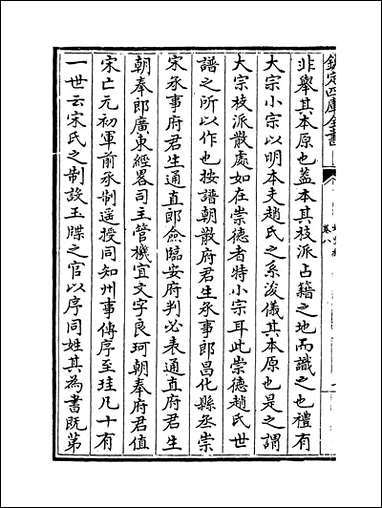 欽定四庫全書
卷八
非舉其本原也蓋本其枝派占籍之地而識之也禮有
大宗小宗以明本夫趙氏之系浚儀其本原也是之謂
大宗枝派散處如在崇德者特小宗耳此崇德趙氏世
譜之所以作也按譜朝散府君生承事郎昌化縣丞崇
宋承事府君生通直郎僉臨安府判必表通直府君生
朝奉郎廣東經畧司主管機宜文字良珂朝奉府君值
宋亡元初軍前承制遥授同知州事傳序至珪凡十有
一世云宋氏之制設玉牒之官以序同姓其為書既第